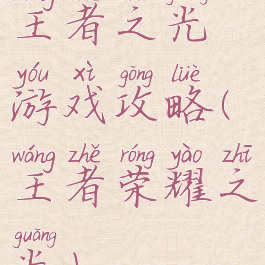 王者之光
yóu xì gōng lüè
游戏攻略(
wáng zhě róng yào zhī
王者荣耀之
guāng
光)